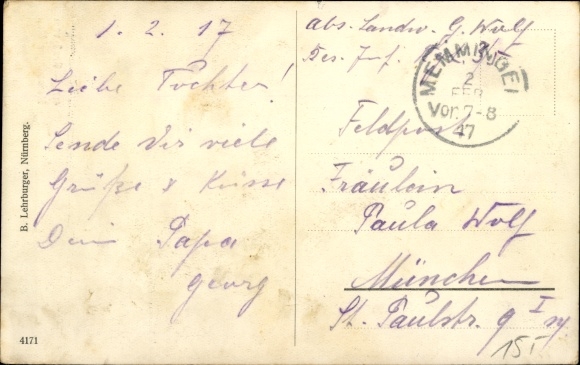 1. 2. 17
Liebe Tochter!
Sende Dir viele
Grüße & Küsse
Dein Papa
Georg
Abs. Landw. G. Wolf
Res. Inf.
MEMMINGEN
2
FEB
Vor. 7-8
17
Feldpost
Fräulein
Paula Wolf
München
St. Paulstr. 9 I
15.-
B. Lehrburger, Nürnberg.
4171